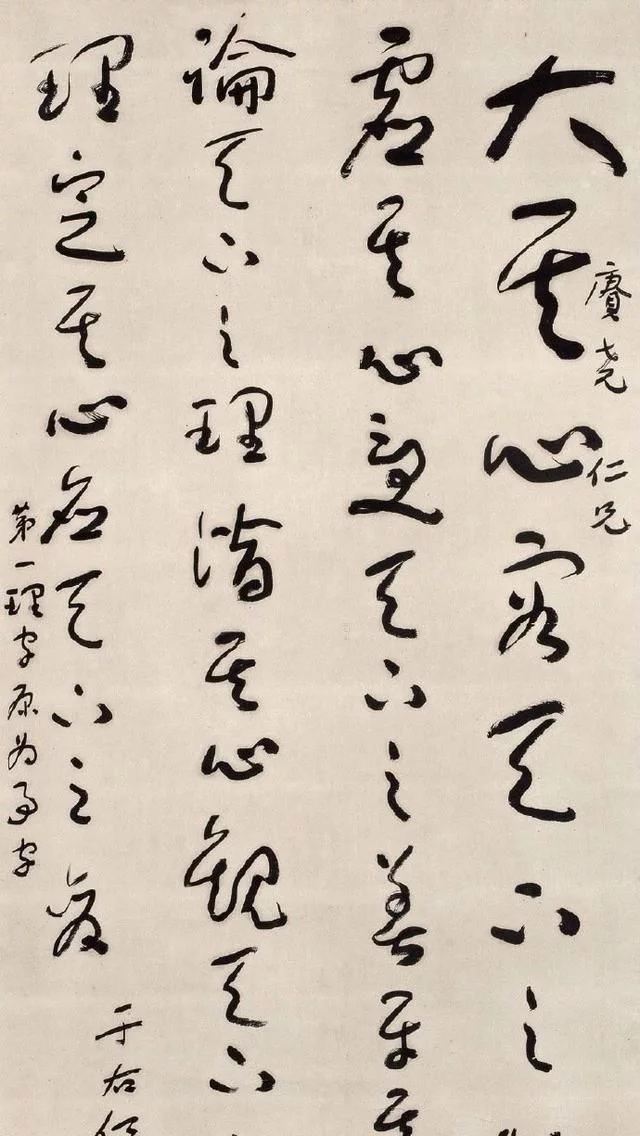 賡尧仁兄
大其心容天下之
虛其心受天下之善平其
論天下之理潛其心觀天下
理定其心應天下之變
于右任
第一理字原为事字